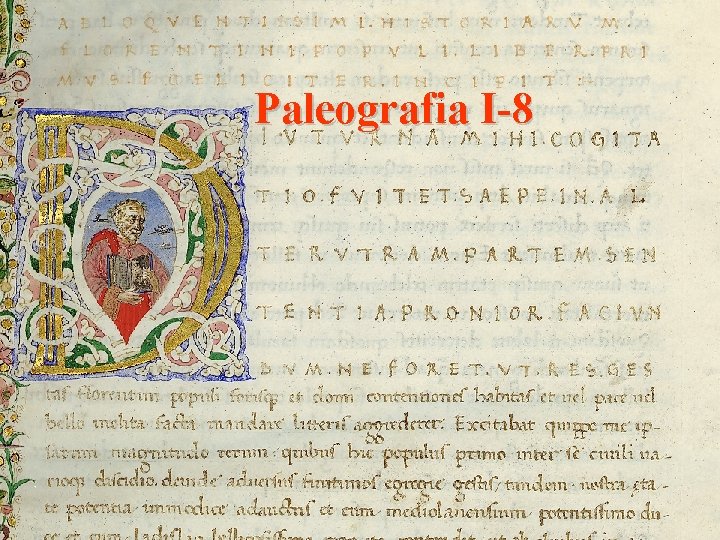 ELOQVENTISSIMI.HISTORIARVM
FLORENTINI POPVLI LIBER PRI
MVS FOELICITER INCIPIT
Paleografia I-8
DIVTVRNA MIHI COGITA
TIO.FVIT ET SAEPE IN.AL
TERVTRAM PARTEM SEN
TENTIA PRONIOR.FACIVN
DVM NE.FORET.VT.RES.GES
tas florentini populi forisq; et domi contentiones habitas et vel pace vel
bello inclita facta mandare litteris aggrederer. Excitabat quippe me ip-
sarum magnitudo rerum: quibus hic populus primo inter se civili va-
rioq; discidio, deinde adversus finitimos egregie gestis, tandem nostra eta-
te potentia immodice adauctus et cum mediolanensium potentissimo du-
ce et cum